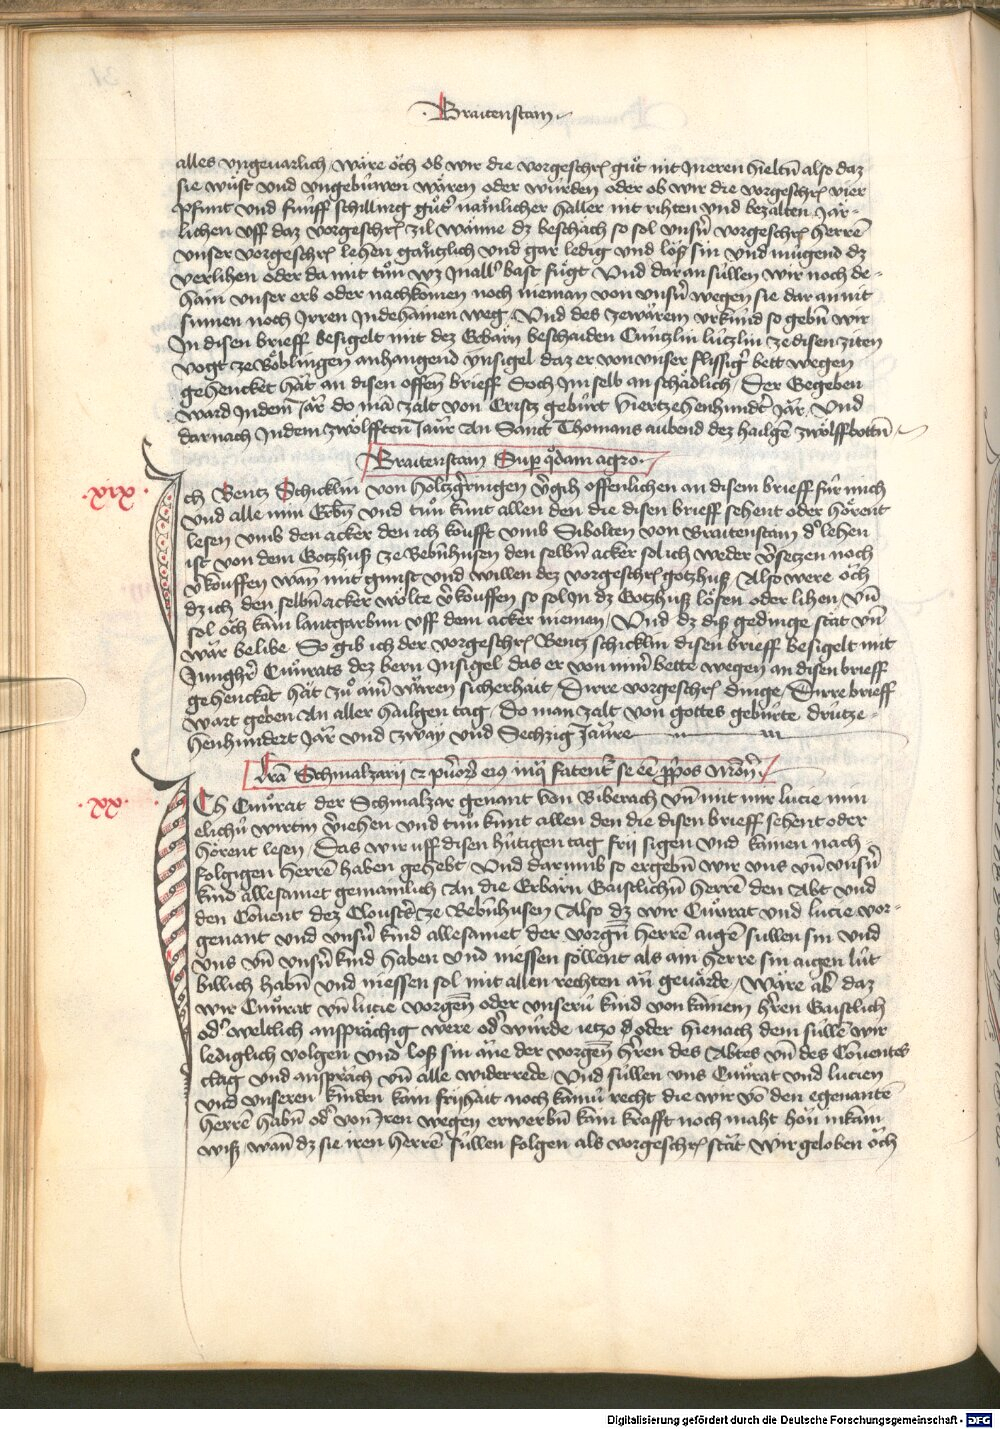 Braitenstain
alles vngeuarlich / wäre öch ob wir die vorgeschrẜ gůt nit Jneren hieltn̄ also daz
sie wůst vnd vngebuwen wären oder würden oder ob wir die vorgeschrẜ vier
pfunt vnd fünff schilling gůt' nämlicher haller nit rihten vnd bezalten Jär-
lichen vff daz vorgeschrẜ zil wänne dz beschäch so sol vnsn̄ vorgeschrẜ herrē
vnser vorgeschrẜ lehen gäntzlich vnd gar ledig vnd löß sin vnd mügend dz
verlihen oder da mit tůn wz Jnall' bast fůgt Vnd dar an süllen wir noch de-
hain vnser erb oder nachkomen noch nieman von vnsn̄ wegen sie dar an nit
sumen noch Jrren Jndehainen weg Vnd des zewarem vrkünd so gebn̄ wir
Jn disen brieff besigelt mit dez Erbärn beschaiden Cüntzlin lützlin ze disen ziten
vogt ze Böblingen anhangend ynsigel daz er von vnser flissig' bett wegen
gehencket hät an disen offenn̄ brieff Doch Jm selb an schädlich / Der Gegeben
ward Jndem Jär do mā zalt von Cristz gebürt viertzehenhundert Jär Vnd
darnach Jndem zwölfften Jaür An Sanct Thomans aubend dez hailgē zwölffbottn̄
Braitenstain Sup̱ q̄dam agro
·xix·
Jch Bentz Schicklin von holtzgerningen v̄gih offenlichen an disem brieff für mich
vnd alle min Erbn̄ vnd tůn kunt allen den die disen brieff sehent oder hörent
lesen vmb den acker den ich koufft vmb Sibolten von Braitenstain d' lehen
ist von dem Gotzhuß ze Bebnhusen den selbn̄ acker sol ich weder v̄setzen noch
v̄kouffen wan̄ mit gunst vnd willen dez vorgeschrẜ gotzhuß Also were öch
dz ich den selbn̄ acker wölte v̄kouffen so sol Jn dz Gotzhuß lösen oder lihen / vn̄
sol öch kain lantgarbun vff dem acker nieman / Vnd dz diß gedinge stät vn̄
wär belibe So gib ich der vorgeschrẜ Bentz schicklin disen brieff besigelt mit
Junghr̄ Cůnrats dez bern Jnsigel das er von min̄ bette wegen an disen brieff
gehencket hät zů ainer wären sicherhait / Dirre vorgeschrẜ dinge / Dirre brieff
wart geben An aller hailgen tag / Do man zalt von gottes gebürte drütze-
henhundert Jär vnd zway vnd Sechzig Jäüre
lrā Schmalzarij et
·xx·
Jch Cůnrat der Schmalzar genant von Biberach vn̄ mit mir lucie min
elichū wirtin v̄iehen vnd tůn kunt allen den die disen brieff sehent oder
hörent lesen / Das wir vff disen hütigen tag frij sigen vnd kainen nach
folgigen herrē haben gehebt Vnd darumb so ergebn̄ wir vns vn̄ vnsn̄
kind allesamet gemainlich An die Erbärn Gaistlichn̄ herrē den Abt vnd
den Couent dez Closters ze Bebnhusen Also dz wir Cůnrat vnd lucie vor-
genant vnd vnsn̄ kind allesamet der vorgn̄ herrē aigē sullen sin vnd
vns vn̄ vnsn̄ kind haben vnd niessen söllent als ain herre sin aigen lüt
billich habn̄ vnd niessen sol mit allen rechten än geuärde / Wäre ab' daz
wir Cůnrat vn̄ lucie vorgen̄ oder vnserū kind von kainem hr̄ren Gaistlich
od' weltlich ansprächig were od' würde ietzo oder hienach dem sullē wir
lediglich volgen vnd loß sin äne der vorgen̄ hr̄ren des Abtes vn̄ des Couentes
clag vnd anspräch vn̄ alle widerrede / Vnd süllen vns Cůnrat vnd lucien
vnd vnseren kinden kain frijhait noch kainū recht die wir vō den egenantē
herrē habn̄ od' von Jren wegen erwerbn̄ kain krafft noch maht hön inkain
wiß / wan̄ dz sie iren herrē süllen folgen als vorgeschrẜ stät Wir geloben öch
Digitalisierung gefördert durch die Deutsche Forschungsgemeinschaft - DFG